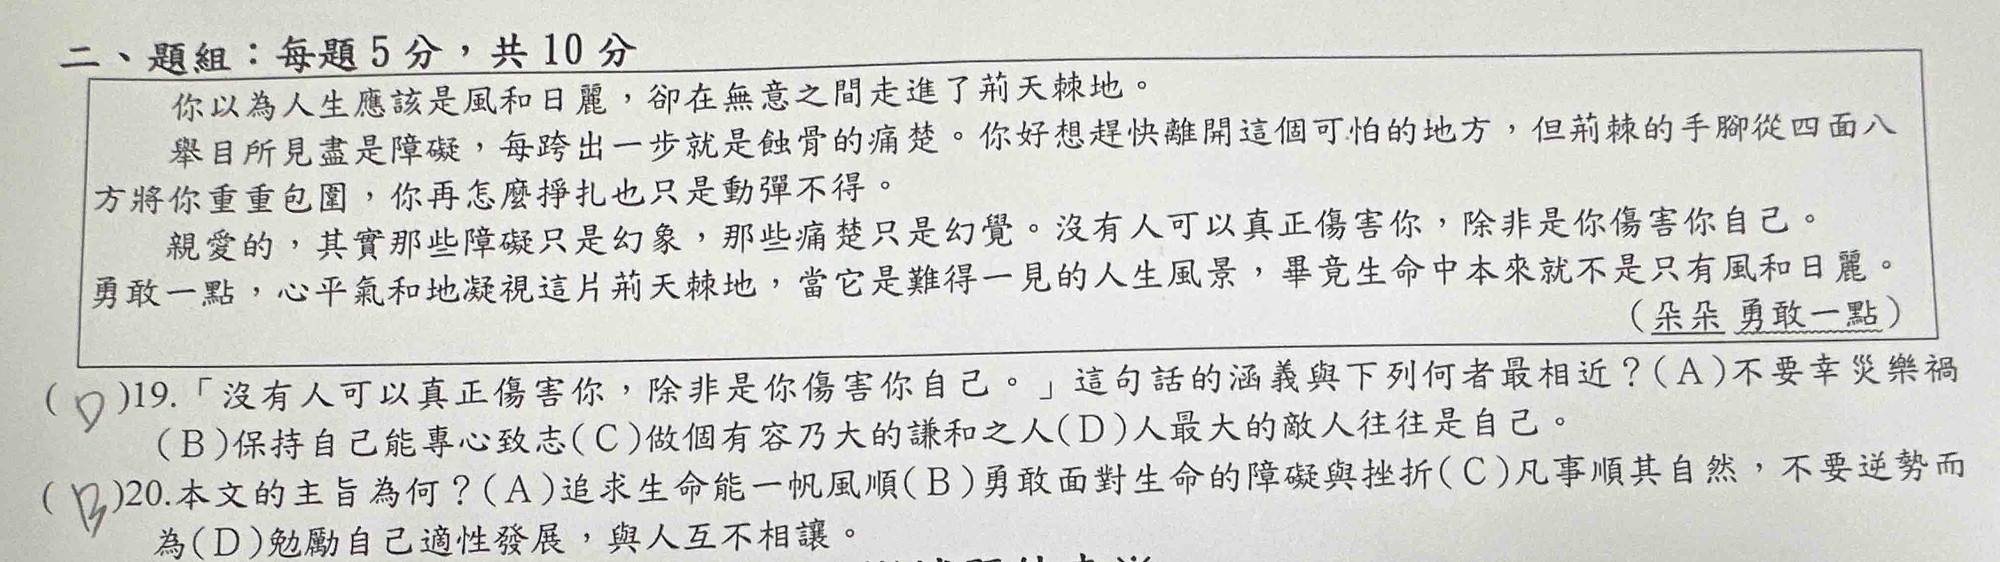 二、題組：每題5分，共10分
你以為人生應該是風和日麗，卻在無意之間走進了荊天棘地。
舉目所見盡是障礙，每跨出一步就是蝕骨的痛楚。你好想趕快離開這個可怕的地方，但荊棘的手腳從四面八
方將你重重包圍，你再怎麼掙扎也只是動彈不得。
親愛的，其實那些障礙只是幻象，那些痛楚只是幻覺。沒有人可以真正傷害你，除非是你傷害你自己。
勇敢一點，心平氣和地凝視這片荊天棘地，當它是難得一見的人生風景，畢竟生命中本來就不是只有風和日麗。
（朵朵 勇敢一點）
( D )19.「沒有人可以真正傷害你，除非是你傷害你自己。」這句話的涵義與下列何者最相近？(A)不要幸災樂禍
(B)保持自己能專心致志(C)做個有容乃大的謙和之人(D)人最大的敵人往往是自己。
( B )20.本文的主旨為何？(A)追求生命能一帆風順(B)勇敢面對生命的障礙與挫折(C)凡事順其自然，不要逆勢而
為(D)勉勵自己適性發展，與人互不相讓。